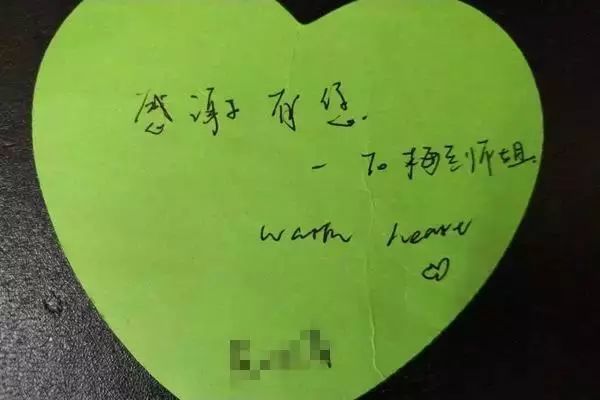 感谢有您.
- To 梅兰师姐.
warm heart